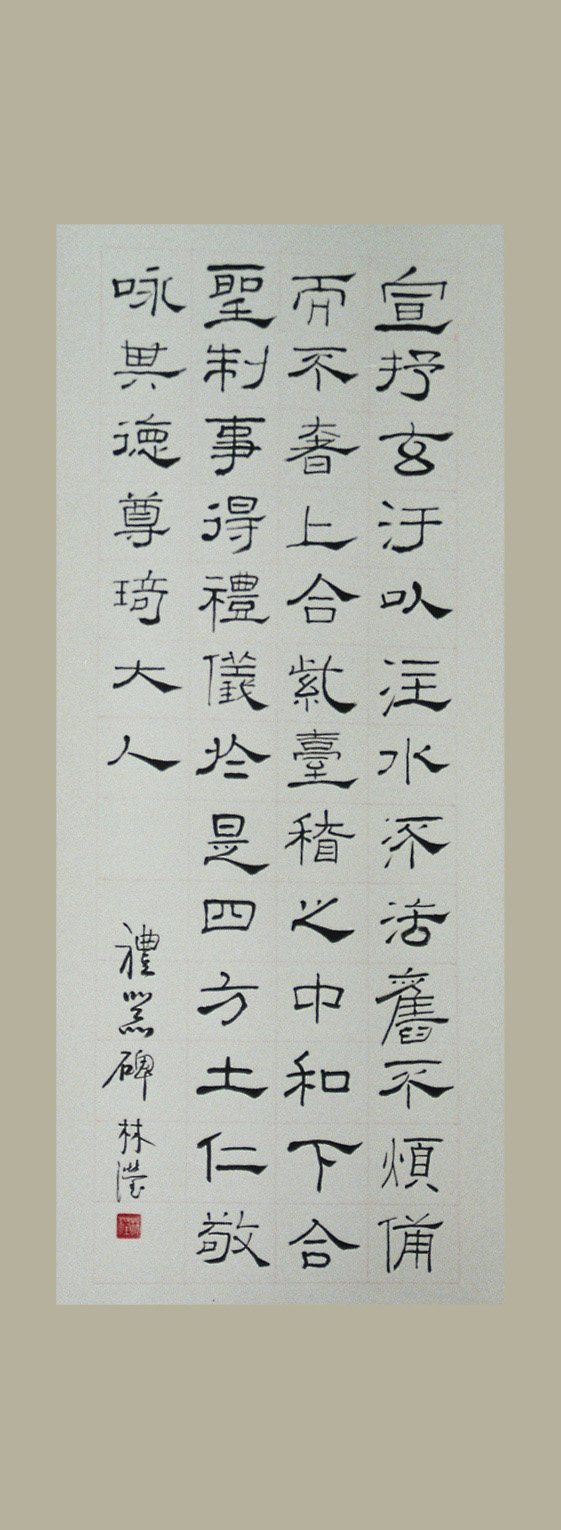 宣抒玄汙以注水流活舊不煩備
而不奢上合紫臺稽之中和下合
聖制事得禮儀於是四方土仁敬
咏其德尊琦大人
禮器碑
林瀅